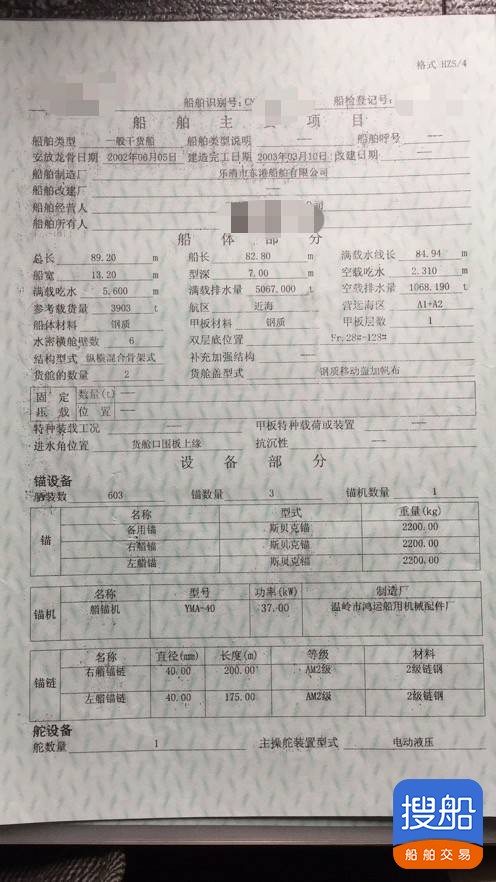 格式 HZS/4
船舶识别号:CN 船检登记号:
船 舶 主 要 项 目
船舶类型 一般干货船 船舶类型说明 —— 船舶呼号 ——
安放龙骨日期 2002年06月05日 建造完工日期 2003年03月10日 改建日期 ——
船舶制造厂 乐清市东港船舶有限公司
船舶改建厂 ——
船舶经营人 公司
船舶所有人
船 体 部 分
总长 89.20 m 船长 82.80 m 满载水线长 84.94 m
船宽 13.20 m 型深 7.00 m 空载吃水 2.310 m
满载吃水 5.600 m 满载排水量 5067.000 t 空载排水量 1068.190 t
参考载货量 3903 t 航区 近海 营运海区 A1+A2
船体材料 钢质 甲板材料 钢质 甲板层数 1
水密横舱壁数 6 双层底位置 Fr.28#-128#
结构型式 纵横混合骨架式 补充加强结构 ——
货舱的数量 2 货舱盖型式 钢质移动盖加帆布
固定 数量(t) ——
压载 位置 ——
特种装载工况 —— 甲板特种载荷或装置 ——
进水角位置 货舱口围板上缘 抗沉性 ——
设 备 部 分
锚设备
舾装数 603 锚数量 3 锚机数量 1
锚 名称 型式 重量(kg)
备用锚 斯贝克锚 2200.00
右艏锚 斯贝克锚 2200.00
左艏锚 斯贝克锚 2200.00
锚机 名称 型号 功率(kW) 制造厂
艏锚机 YMA-40 37.00 温岭市鸿运船用机械配件厂
锚链 名称 直径(mm) 长度(m) 等级 材料
右艏锚链 40.00 200.00 AM2级 2级链钢
左艏锚链 40.00 175.00 AM2级 2级链钢
舵设备
舵数量 1 主操舵装置型式 电动液压
搜船
船舶交易